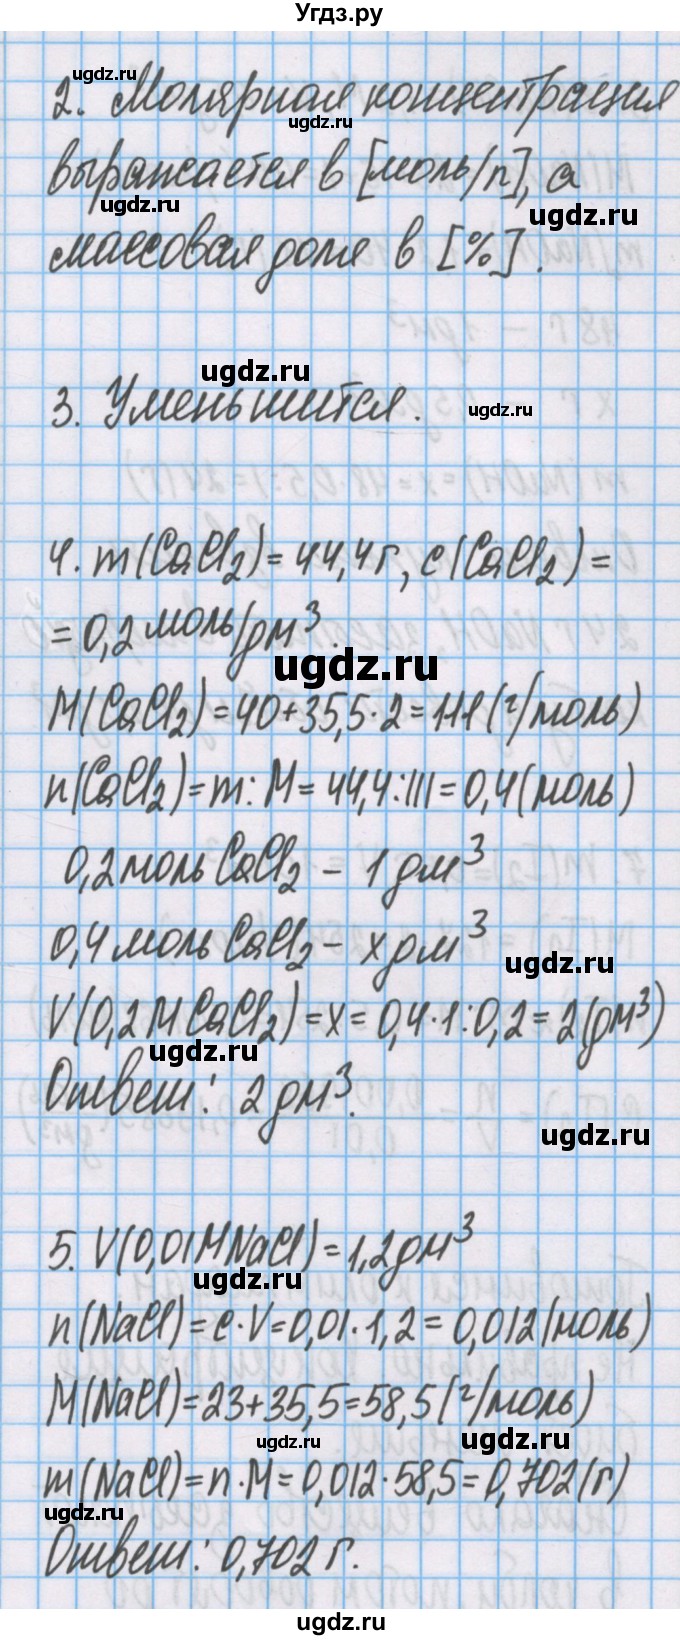 Угдз.ру
ugdz.ru
2. Молярная концентрация
ugdz.ru
выражается в [моль/л], а
ugdz.ru
ugdz.ru
массовая доля в [%].
ugdz.ru
3. Уменьшится.
ugdz.ru
4. m(CaCl₂)=44,4г, c(CaCl₂)=
=0,2моль/дм³.
ugdz.ru
M(CaCl₂)=40+35,5·2=111(г/моль)
n(CaCl₂)=m:M=44,4:111=0,4(моль)
0,2моль CaCl₂ – 1дм³
0,4моль CaCl₂ – xдм³
ugdz.ru
V(0,2M CaCl₂)=x=0,4·1:0,2=2(дм³)
ugdz.ru
Ответ: 2дм³.
ugdz.ru
5. V(0,01M NaCl)=1,2дм³
ugdz.ru
n(NaCl)=c·V=0,01·1,2=0,012(моль)
M(NaCl)=23+35,5=58,5(г/моль)
ugdz.ru
ugdz.ru
m(NaCl)=n·M=0,012·58,5=0,702(г)
ugdz.ru
Ответ: 0,702г.
ugdz.ru